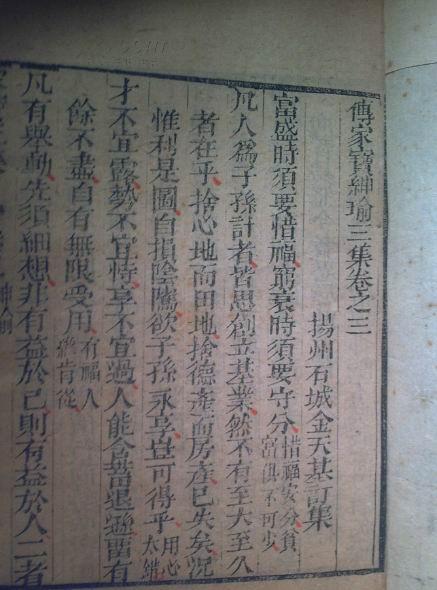 傳家寶紳瑜三集卷之三
揚州石城金天基訂集
富盛時須要惜福窮衰時須要守分惜福安分貧富俱不可少
凡人爲子孫計者皆思創立基業然不有至大至久
者在乎捨心地而田地捨德產而房產已失矣況
惟利是圖自損陰騭欲子孫永享豈可得乎用心太錯
才不宜露勢不宜恃享不宜過人能含蓄退遜留有
餘不盡自有無限受用有福人纔肯從
凡有舉動先須細想非有益於己則有益於人二者